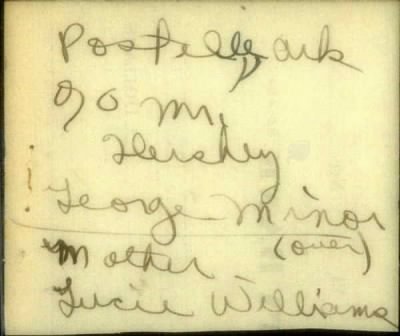 Postelle, ark
c/o Mr.
Hershey
George Minor
(over)
Mother
Lucie Williams